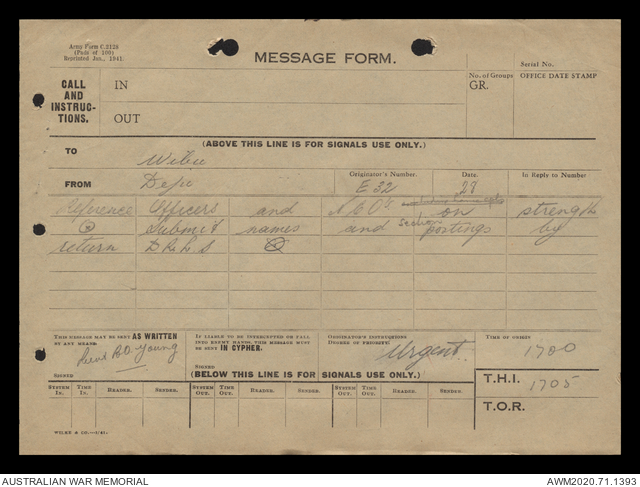 Army Form C.2128
(Pads of 100)
Reprinted Jan., 1941.
MESSAGE FORM.
Serial No.
CALL AND INSTRUC-TIONS.
IN
OUT
No. of Groups
GR.
OFFICE DATE STAMP
(ABOVE THIS LINE IS FOR SIGNALS USE ONLY.)
TO
FROM
Originator's Number.
E 32
Date.
28
In Reply to Number
Reference Officers and NCOs on strength
submit names and Section postings by
return D.R.L.S
THIS MESSAGE MAY BE SENT AS WRITTEN
BY ANY MEANS.
R.D. Young
SIGNED
IF LIABLE TO BE INTERCEPTED OR FALL
INTO ENEMY HANDS, THIS MESSAGE MUST
BE SENT IN CIPHER.
SIGNED
ORIGINATOR'S INSTRUCTIONS
DEGREE OF PRIORITY.
Urgent
TIME OF ORIGIN
1700
(BELOW THIS LINE IS FOR SIGNALS USE ONLY.)
T.H.I. 1705
T.O.R.
SYSTEM IN. TIME IN. READER. SENDER. SYSTEM OUT. TIME OUT. READER. SENDER. SYSTEM OUT. TIME OUT. READER. SENDER.
WILKE & CO.—1/41.
AUSTRALIAN WAR MEMORIAL
AWM2020.71.1393